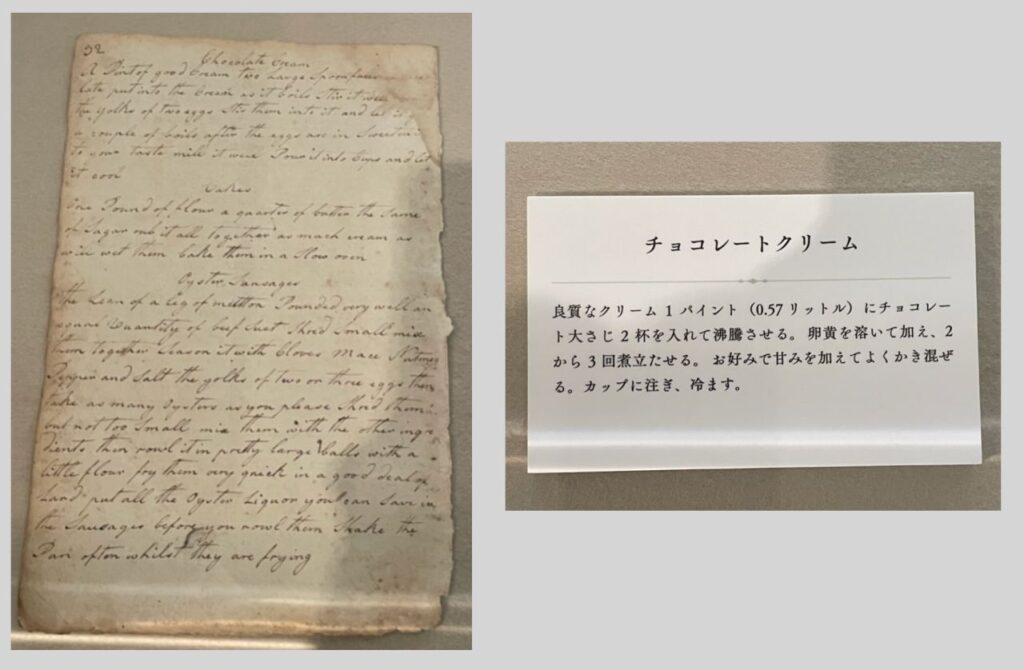 32
Chocolate Cream
A Pint of good Cream two Large Spoonfuls
late put into the Cream as it Boils Stir it well
the yolks of two eggs Stir them into it and let it
a couple of boils after the eggs are in Sweeten it
to your taste mill it well Pour it into Cups and let
it cool
Cakes
One Pound of flour a quarter of butter the Same
of Sugar rub it all together as much cream as
will wet them bake them in a Slow oven
Oyster Sausages
The Lean of a leg of mutton Pounded very well an
equal Quantity of beef Suet Shred Small mix
them together Season it with Cloves Mace Nutmeg
Pepper and Salt the yolks of two or three eggs then
take as many Oysters as you please Shred them
but not too Small mix them with the other ingre
dients then rowl it in pretty large balls with a
little flour fry them very quick in a good deal of
Lard put all the Oyster Liquor you can Save in
the Sausages before you rowl them Shake the
Pan often whilst they are frying
チョコレートクリーム
良質なクリーム 1 パイント（0.57 リットル）にチョコレー
ト大さじ 2 杯を入れて沸騰させる。卵黄を溶いて加え、2
から 3 回煮立たせる。お好みで甘みを加えてよくかき混ぜ
る。カップに注ぎ、冷ます。